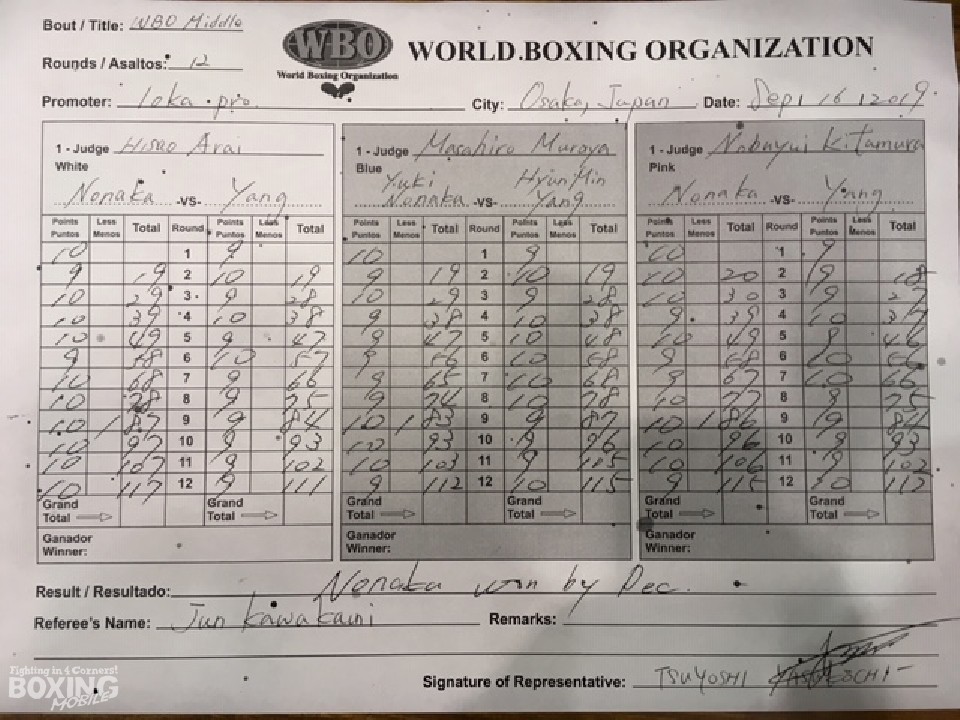 Bout / Title: WBO Middle
WBO
World Boxing Organization
WORLD BOXING ORGANIZATION
Rounds / Asaltos: 12
Promoter: Ioka pro. City: Osaka, Japan Date: Sept 16 2019.
1 - Judge Hisao Arai
White
Nonaka -VS- Yang
Points Puntos Less Menos Total Round Points Puntos Less Menos Total
10 1 9
9 19 2 10 19
10 29 3 9 28
10 39 4 10 38
10 49 5 9 47
9 58 6 10 57
10 68 7 9 66
10 78 8 9 75
10 1 87 9 9 84
10 97 10 9 93
10 107 11 9 102
10 117 12 9 111
Grand Total Grand Total
Ganador
Winner:
1 - Judge Masahiro Muroya
Blue
Yuki Nonaka -VS- HyunMin Yang
Points Puntos Less Menos Total Round Points Puntos Less Menos Total
10 1 9
9 19 2 10 19
10 29 3 9 28
9 38 4 10 38
9 47 5 10 48
9 56 6 10 58
9 65 7 10 68
9 74 8 10 78
10 1 83 9 9 87
10 93 10 9 96
10 103 11 9 105
9 112 12 10 115
Grand Total Grand Total
Ganador
Winner:
1 - Judge Nobuyui Kitamura
Pink
Nonaka -VS- Yang
Points Puntos Less Menos Total Round Points Puntos Less Menos Total
10 1 9
10 20 2 9 18
10 30 3 9 27
9 39 4 10 37
10 49 5 9 46
9 58 6 10 56
9 67 7 10 66
10 77 8 9 75
10 1 86 9 9 84
10 96 10 9 93
10 106 11 9 102
9 115 12 10 112
Grand Total Grand Total
Ganador
Winner:
Result / Resultado: Nonaka won by Dec.
Referee's Name: Jun Kawakami Remarks:
Signature of Representative: TSUYOSHI
Fighting in 4 Corners!
BOXING
MOBILE